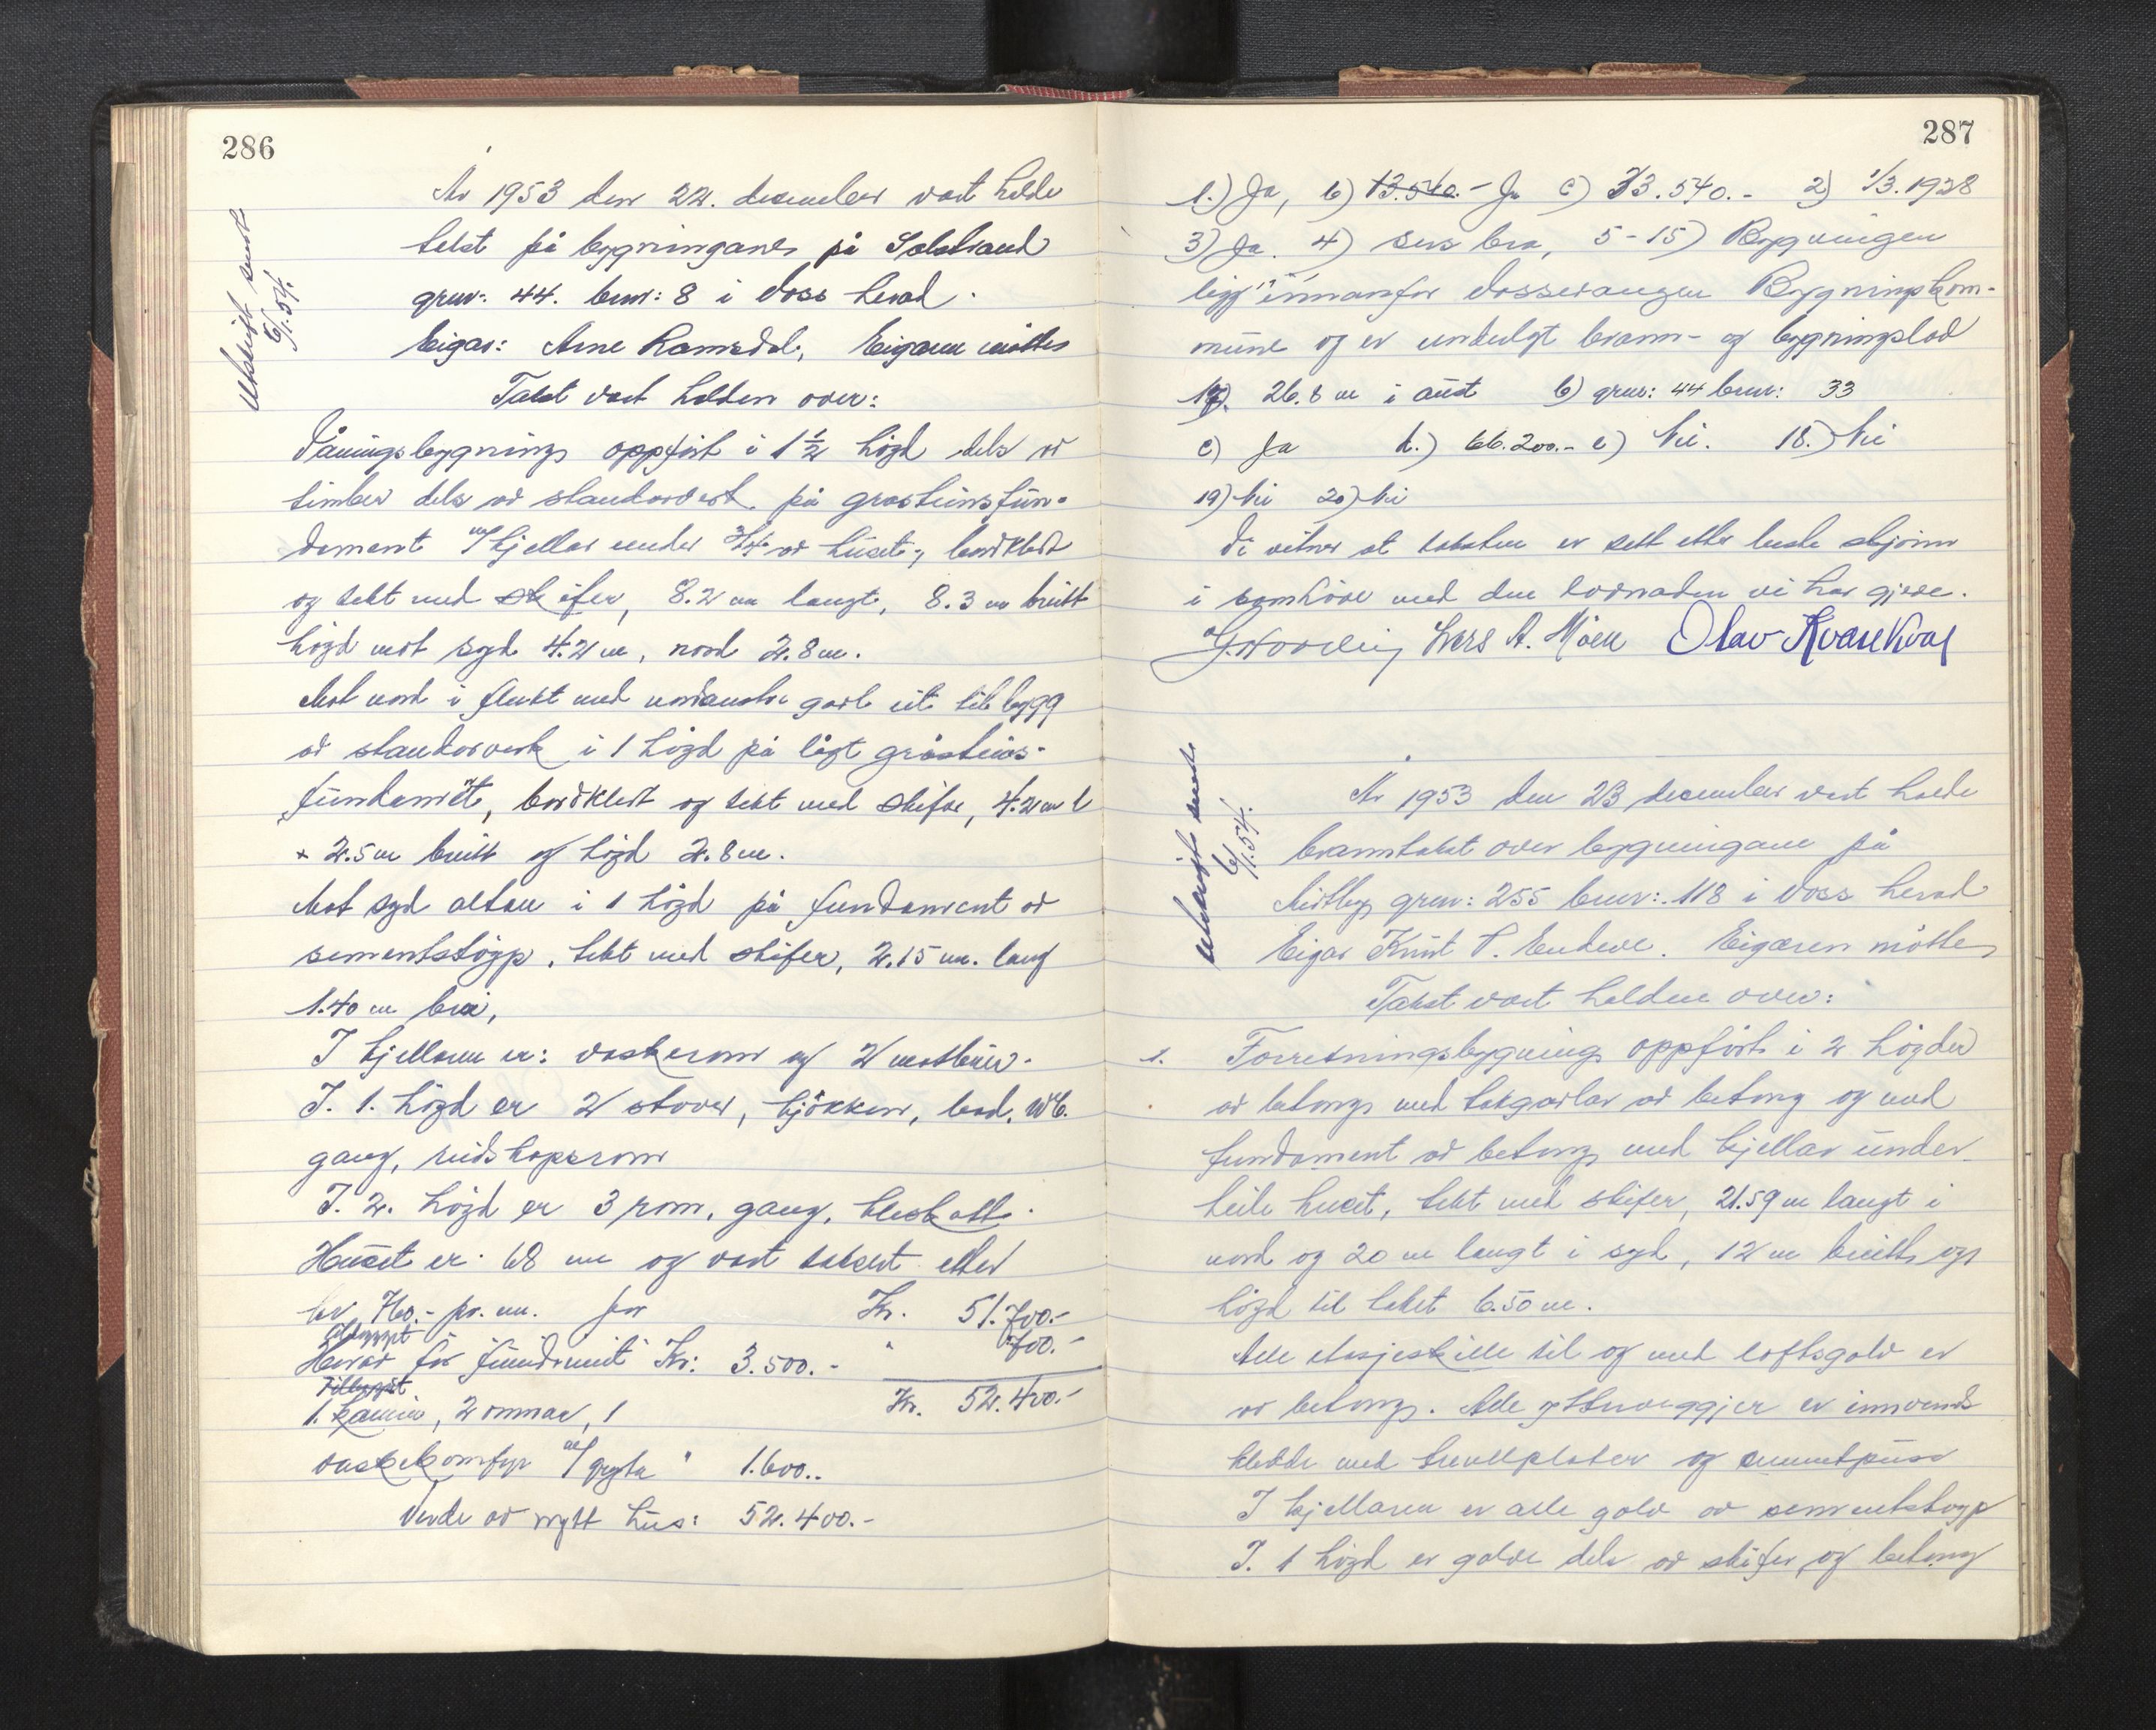 286
Utskrift sendt
6/1.54.
År 1953 den 22. desember vart halde
takst på bygningane på Solstrand
gnr: 44. bnr: 8 i Voss herad.
Eigar: Arne Ramsdal, Eigaren møtte
Takst vart halden over:
Våningsbygning oppført i 1 1/2 høgd dels av
timber dels av standarverk på grasteinsfun-
dament m/kjellar under 3/4 av huset, bordkledt
og tekt med skifer, 8.2 m langt, 8.3 m breitt
høgd mot syd 4.2 m, nord 2.8 m.
Mot nord i flukt med nordaustre gavl eit tilbygg
av standarverk i 1 høgd på lågt gråsteins-
fundament, bordkledt og tekt med skifer, 4.2 m l
x 2.5 m breitt og høgd 2.8 m.
Mot syd altan i 1 høgd på fundament av
sementstøyp, tekt med skifer, 2.15 m. lang
1.40 m brei,
I kjellaren er: vaskerom og 2 matbuer.
I. 1. høgd er 2 stover, kjøkken, bad, WC.
gang, reidskapsrom
I. 2. høgd er 3 rom, gang, kleskott.
Huset er 68 m og vart taksert etter
kr 760.- pr. m. for Kr. 51.700.-
Tilbygget " 700.-
Herav for fundament Kr: 3.500.-
Tillegget
1. kamin, 2 omnar, 1 Kr. 52.400.-
vaskekomfyr m/gryta " 1.600..
Verde av nytt hus: 52.400.-
287
1.) Ja, b) 13.540.- Ja c) 33.540.- 2) 1/3.1928
3) Ja. 4) Sers bra, 5-15) Bygningen
ligg innanfor Vossevangen Bygningskom-
mune og er undulgt brann- og bygningslov
17). 26.8 m i aust b) gnr: 44 bnr: 33
c) Ja d.) 66.200.- e) Nei. 18.) Nei
19) Nei 20) Nei
Vi vitner at taksten er sett etter beste skjønn
i samhøve med den lovnaden vi har gjeve.
Lars A. Møen Olav Kvarekval
Utskrift sendt
6/1.54.
År 1953 den 23 desember vart halde
branntakst over bygningane på
Midtbyg gnr: 255 bnr: 118 i Voss herad
Eigar Knut P. Endeve. Eigaren møtte
Takst vart halden over:
1. Forretningsbygning oppført i 2 høgder
av betong med takgavlar av betong og med
fundament av betong med kjellar under
heile huset, tekt med skifer, 21.59 m langt i
nord og 20 m langt i syd, 12 m breitt og
høgd til taket 6.50 m.
Alle etasjeskille til og med loftsgolv er
av betong. Alle ytterveggjer er innvends
kledde med treullplater og sementpuss
I kjellaren er alle golv av sementstøyp
I. 1 høgd er golve dels av skifer og betong